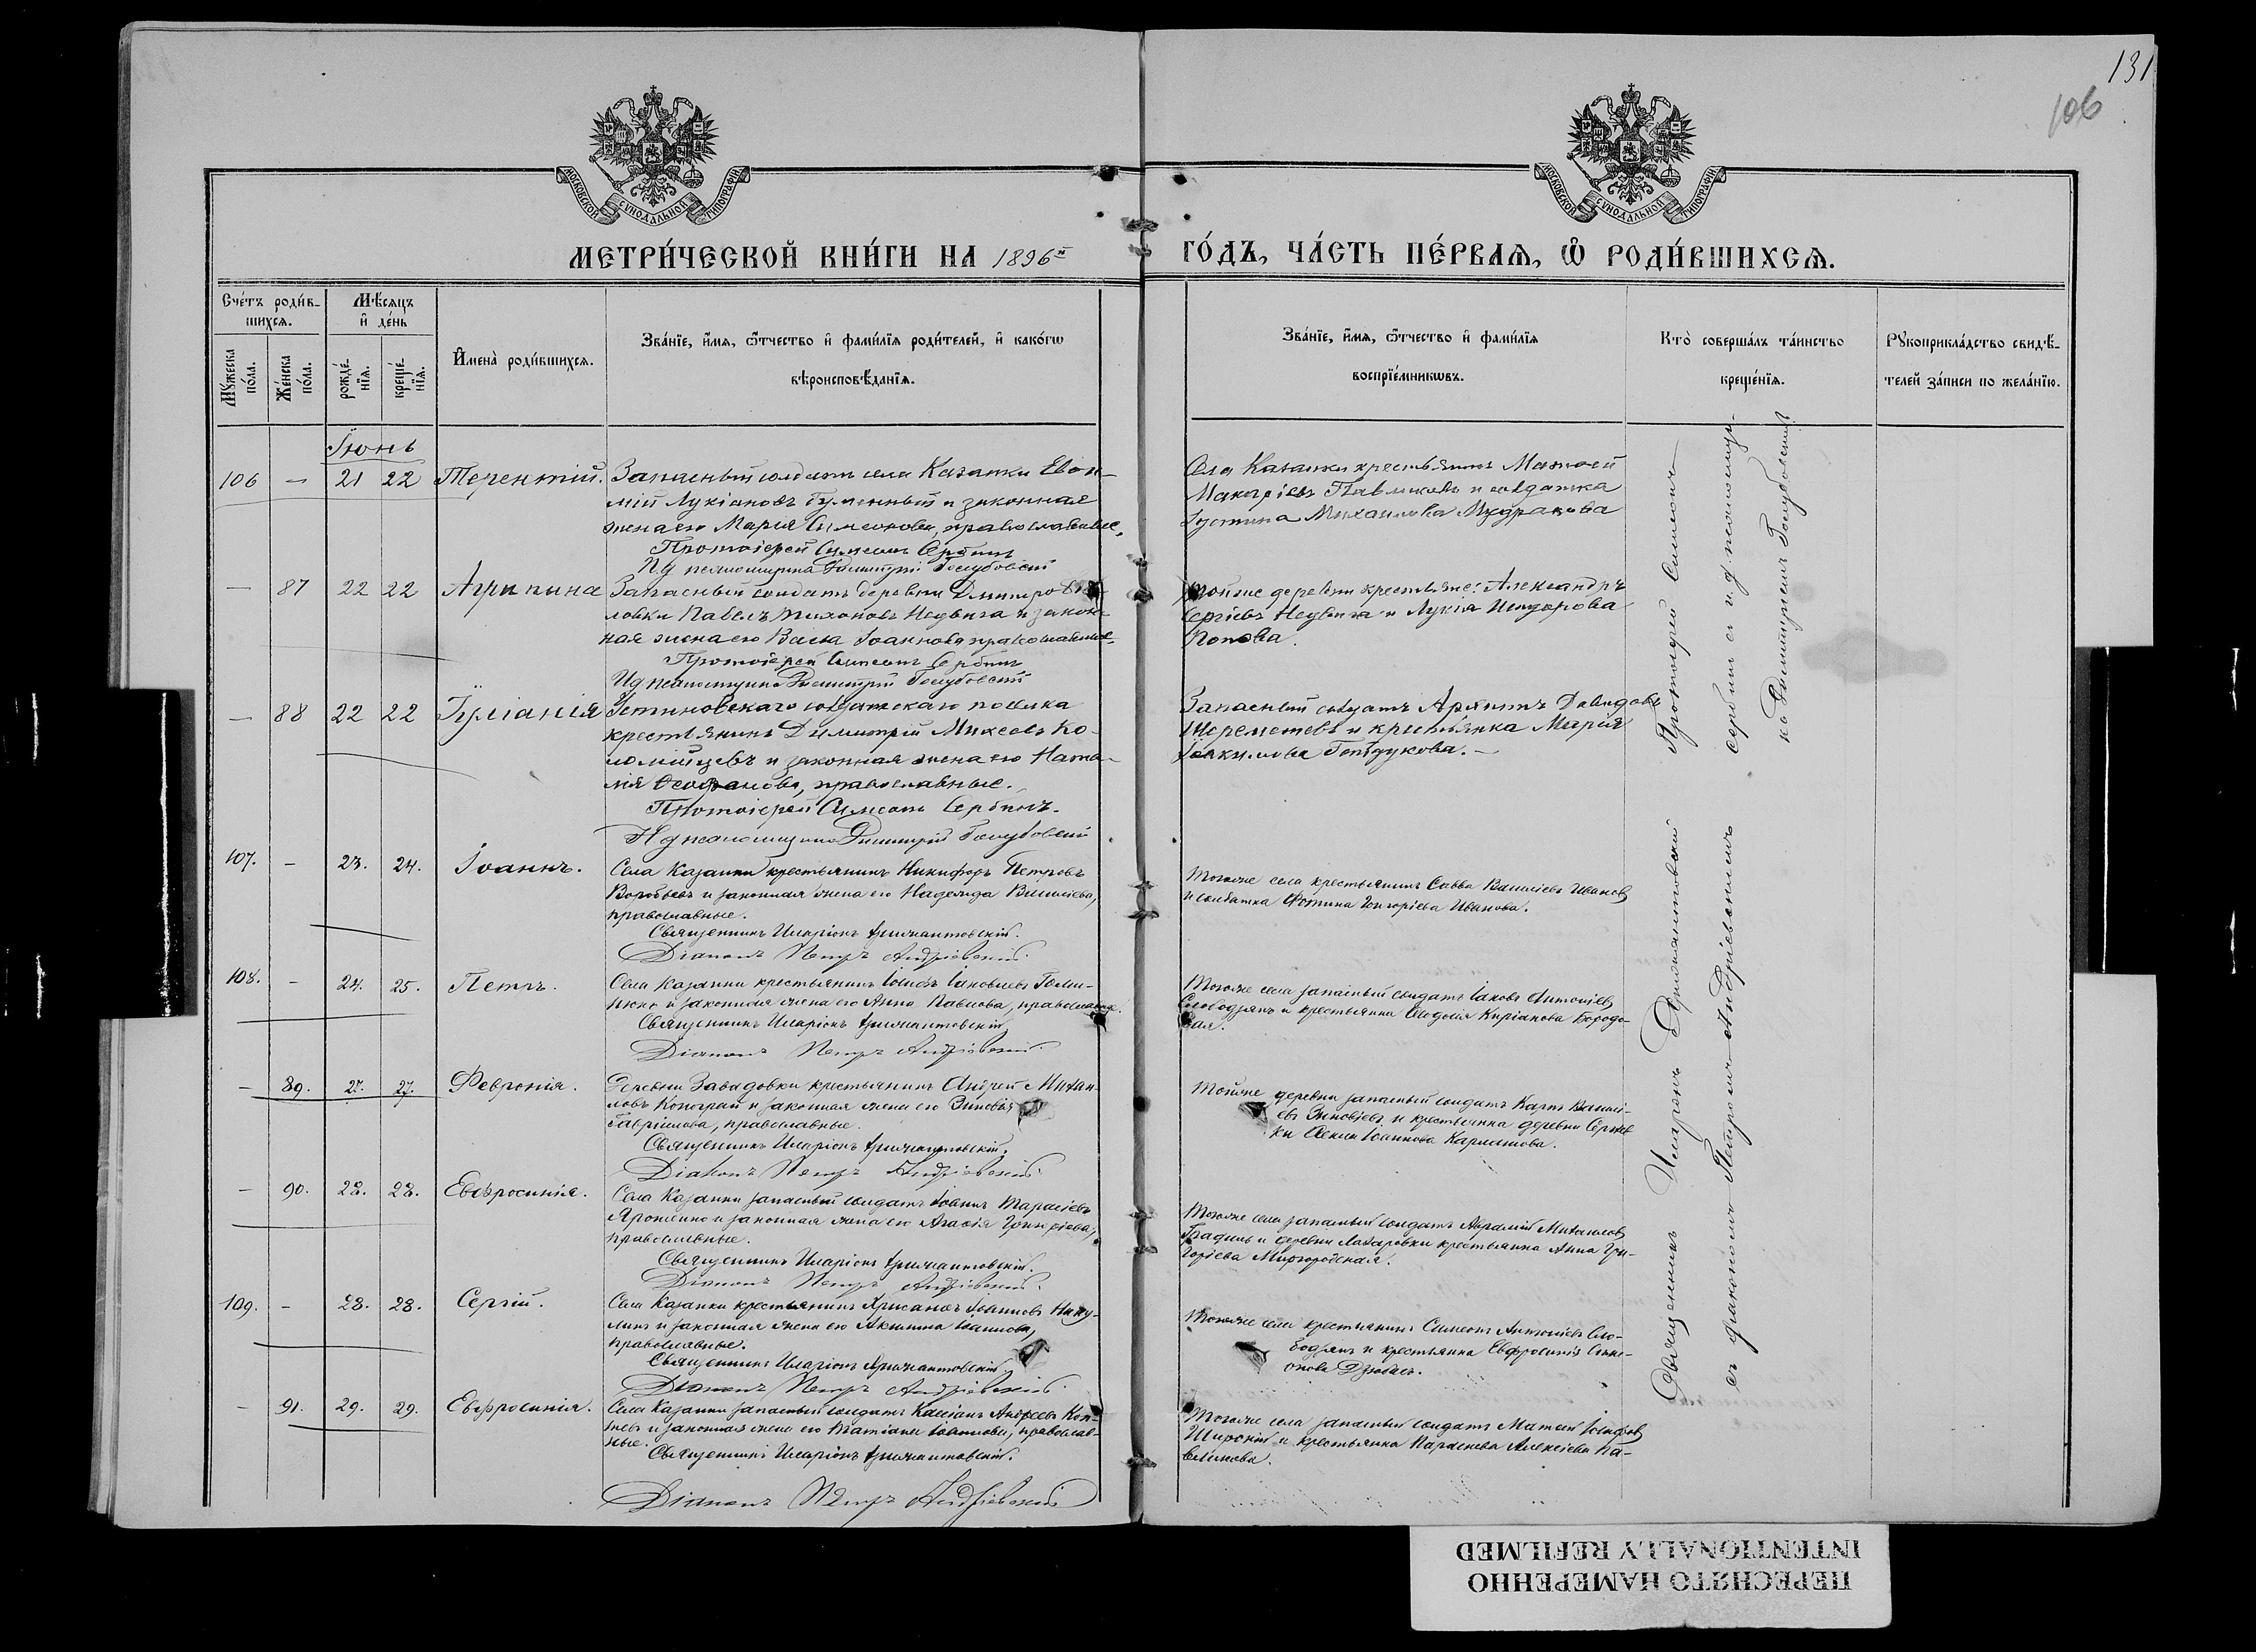 131
106
МОСКОВСКОЙ СѴНОДАЛЬНОЙ ТИПОГРАФІИ
МОСКОВСКОЙ СѴНОДАЛЬНОЙ ТИПОГРАФІИ
МЕТРИ́ЧЕСКОЙ КНИ́ГИ НА 1896й ГО́ДЪ, ЧА́СТЬ ПЕ́РВАѦ, Ѽ РОДИ́ВШИХСѦ.
Сче́тъ роди́в-
шихсѧ.
Мѣ́сѧцъ
и҆ де́нь
Мꙋ́жеска по́ла.
Же́нска по́ла.
рожде́-нїѧ.
креще́-нїѧ.
И҆мена̀ роди́вшихсѧ.
Зва́нїе, и҆́мѧ, ѻ҆́тчество и҆ фами́лїѧ роди́телей, и҆ како́гѡ
вѣроисповѣ́данїѧ.
Зва́нїе, и҆́мѧ, ѻ҆́тчество и҆ фами́лїѧ
воспрїе́мникѡвъ.
Кто̀ соверша́лъ та́инство
креще́нїѧ.
Рꙋкоприкла́дство свидѣ́-
телей за́писи по жела́нїю.
Іюнь
106 — 21 22 Терентій. Запасный солдатъ села Казанки Евфи-
мій Лукіановъ и законная
жена его Марія Симеонова, православные.
Протоіерей Симеонъ Сербинъ
И д псаломщика Димитрій Голубовскій
Села Казанки крестьянинъ Матфей
Макаріевъ Павликовъ и солдатка
Іустина Михайлова Мудракова
— 87 22 22 Агрипина Запасный солдатъ деревни Димитро
ловки Павелъ Тихоновъ Недвига и закон-
ная жена его Васса Іоаннова православные
Протоіерей Симеонъ Сербинъ
И д псаломщика Димитрій Голубовскій
тойже деревни крестьяне: Александръ
Сергіевъ Недвига и Лукія Исидорова
Попова.
— 88 22 22 Іуліанія Устиновскаго солдатскаго поселка
крестьянинъ Димитрій Михеевъ Ко-
ломійцевъ и законная жена его Ната-
лія Ѳеофанова, православные.
Протоіерей Симеонъ Сербинъ.
И д псаломщика Димитрій Голубовскій
Запасный солдатъ Давидовъ
Шереметевъ и крестьянка Марія
Іоакимова
107. – 23. 24. Іоаннъ. Села Казанки крестьянинъ Никифоръ Петровъ
Воробьевъ и законная жена его Надежда Василіева,
православные.
Священникъ Иларіонъ
Діаконъ Петръ Андріевскій.
Тогоже села крестьянинъ Савва Василіевъ Ивановъ
и солдатка Фотина Григоріева Иванова.
108. – 24. 25. Петръ. Села Казанки крестьянинъ Іосифъ Іаковлевъ
и законная жена его Анна Павлова, православные.
Священникъ Иларіонъ
Діаконъ Петръ Андріевскій.
Тогоже села запасный солдатъ Іаковъ Антоніевъ
Слободянъ и крестьянка Кипріанова Бородо-
вая.
– 89. 27. 27. Февронія. Деревни Завадовки крестьянинъ Андрей Михаи-
ловъ Конограй и законная жена его Зиновія
Гавріилова, православные.
Священникъ Иларіонъ
Діаконъ Петръ Андріевскій.
Тойже деревни запасный солдатъ Карпъ Василі-
евъ Зиновіевъ и крестьянка деревни
ки Іоаннова
– 90. 28. 28. Евфросинія. Села Казанки запасный солдатъ Іоаннъ Тарасіевъ
Ярошенко и законная жена его Агафія Григоріева,
православные.
Священникъ Иларіонъ
Діаконъ Петръ Андріевскій.
Тогоже села запасный солдатъ Аврамій Михаиловъ
и деревни Лазаровки крестьянка Анна Гри-
горіева Миргородская.
109. – 28. 28. Сергій. Села Казанки крестьянинъ Хрисанфъ Іоанновъ Нику-
линъ и законная жена его Акилина Іоаннова,
православные.
Священникъ Иларіонъ
Діаконъ Петръ Андріевскій.
Тогоже села крестьянинъ Симеонъ Антоніевъ Сло-
бодянъ и крестьянка Евфросинія Симе-
онова
– 91. 29. 29. Евфросинія. Села Казанки запасный солдатъ Кассіанъ Андреевъ
и законная жена его Татіана Іоаннова, православ-
ные.
Священникъ Иларіонъ
Діаконъ Петръ Андріевскій
Тогоже села запасный солдатъ Матфей Іосифовъ
Широкій и крестьянка Параскева Алексіева Па-
Протоіерей Симеонъ
Сербинъ съ и. д. псаломщи-
ка Димитріемъ Голубовскимъ
Священникъ Иларіонъ
съ діакономъ Петромъ Андріевскимъ
ПЕРЕСНЯТО НАМЕРЕННО
INTENTIONALLY REFILMED